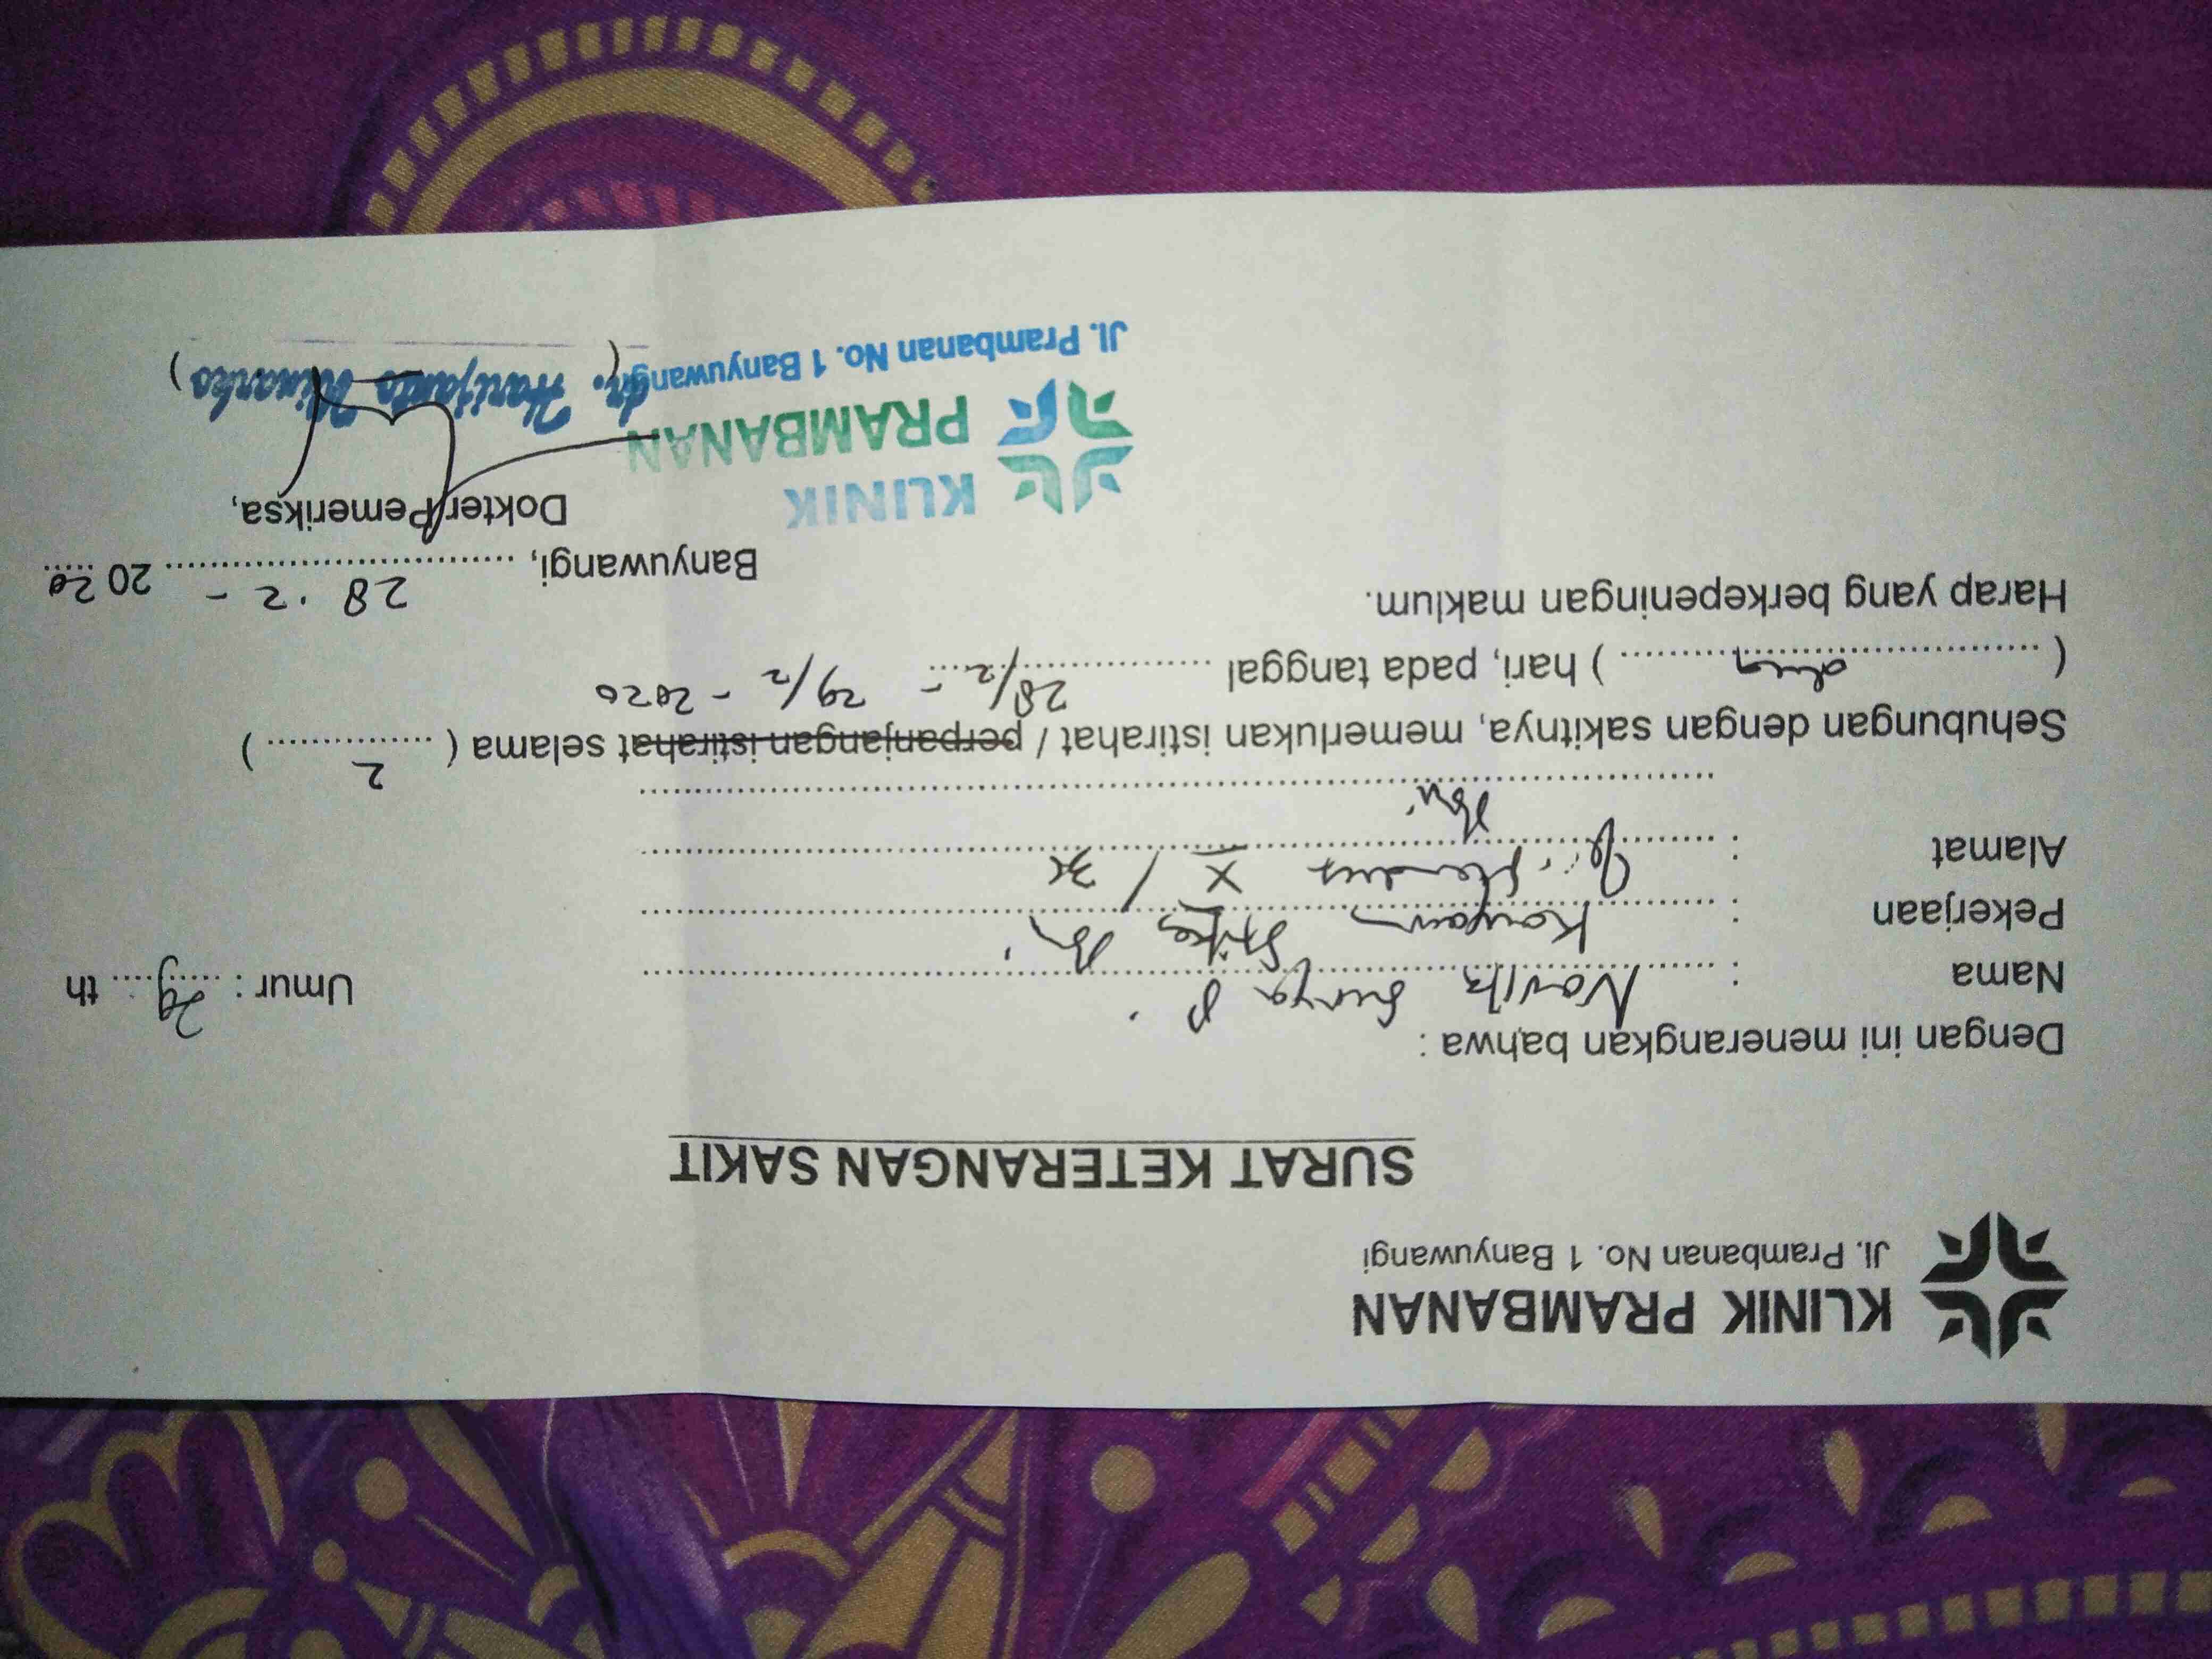 KLINIK PRAMBANAN
Jl. Prambanan No. 1 Banyuwangi
SURAT KETERANGAN SAKIT
Dengan ini menerangkan bahwa :
Nama : Novita Surya P. Umur : 29 th
Pekerjaan : Karyawan Stikes
Alamat : X /
Sehubungan dengan sakitnya, memerlukan istirahat / perpanjangan istirahat selama ( 2 )
( dua ) hari, pada tanggal 28/2 - 29/2 - 2020
Harap yang berkepeningan maklum.
Banyuwangi, 28 . 2 - 2020
Dokter Pemeriksa,
KLINIK
PRAMBANAN
Jl. Prambanan No. 1 Banyuwangi
( dr. Harijanto )